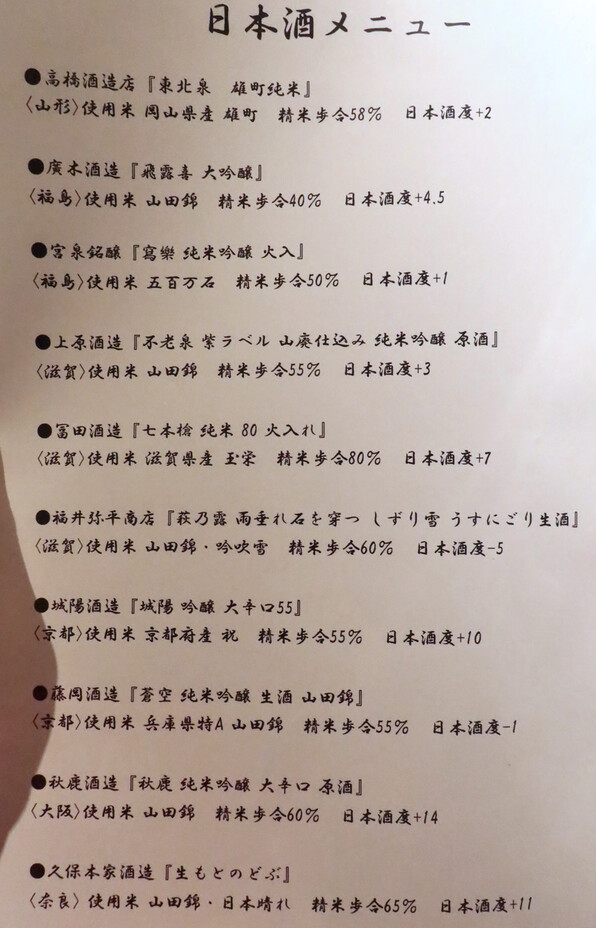 日本酒メニュー
●高橋酒造店『東北泉　雄町純米』
〈山形〉使用米 岡山県産 雄町　精米歩合58%　日本酒度+2
●廣木酒造『飛露喜 大吟醸』
〈福島〉使用米 山田錦　精米歩合40%　日本酒度+4.5
●宮泉銘醸『寫樂 純米吟醸 火入』
〈福島〉使用米 五百万石　精米歩合50%　日本酒度+1
●上原酒造『不老泉 紫ラベル 山廃仕込み 純米吟醸 原酒』
〈滋賀〉使用米 山田錦　精米歩合55%　日本酒度+3
●冨田酒造『七本槍 純米 80 火入れ』
〈滋賀〉使用米 滋賀県産 玉栄　精米歩合80%　日本酒度+7
●福井弥平商店『萩乃露 雨垂れ石を穿つ しずり雪 うすにごり生酒』
〈滋賀〉使用米 山田錦・吟吹雪　精米歩合60%　日本酒度-5
●城陽酒造『城陽 吟醸 大辛口55』
〈京都〉使用米 京都府産 祝　精米歩合55%　日本酒度+10
●藤岡酒造『蒼空 純米吟醸 生酒 山田錦』
〈京都〉使用米 兵庫県特A 山田錦　精米歩合55%　日本酒度-1
●秋鹿酒造『秋鹿 純米吟醸 大辛口 原酒』
〈大阪〉使用米 山田錦　精米歩合60%　日本酒度+14
●久保本家酒造『生もとのどぶ』
〈奈良〉使用米 山田錦・日本晴れ　精米歩合65%　日本酒度+11